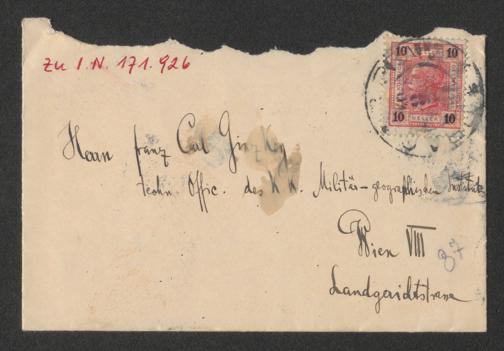 Zu I.N. 171.926
10 10
HELLER
10 10
Herrn Franz Carl Ginzkey
techn. Offic. des k.k. Militär-geographischen Instituts
Wien VIII
87
Landgerichtstrasse